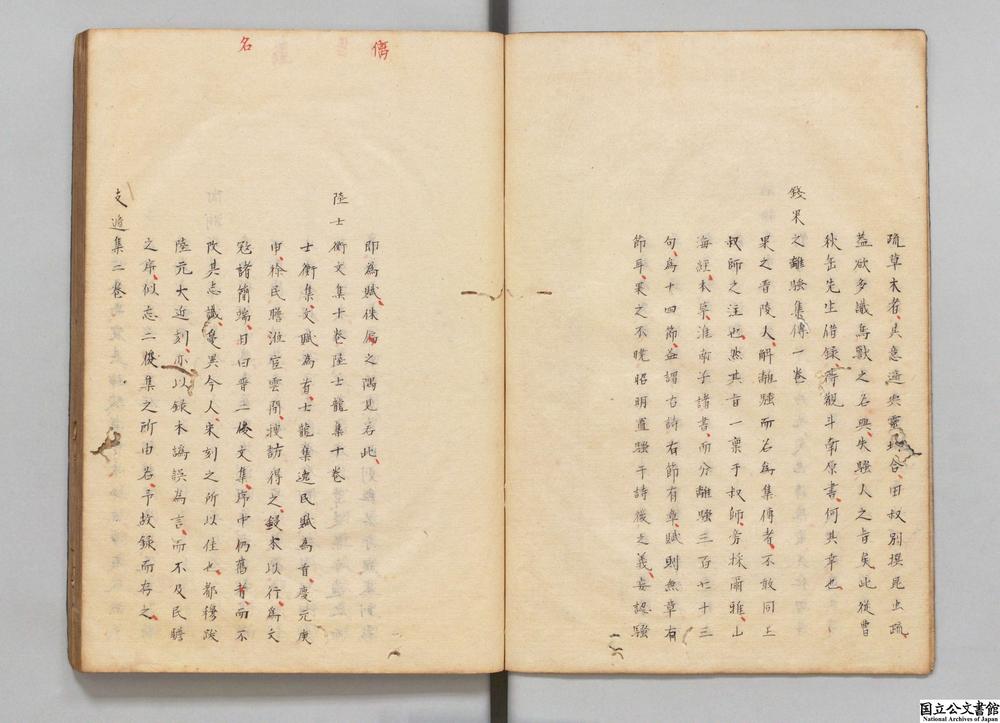 疏草木者、其意適與靈均合、田叔別撰昆虫疏、
益欲多識鳥獸之名與、失騷人之旨矣、此從曹
秋岳先生借錄、得觀斗南原書、何其幸也、
錢杲之離騷集傳一卷
杲之晉陵人、解離騷而名為集傳者、不敢同王
叔師之注也、然其旨一稟于叔師、旁採爾雅、山
海經、本草、淮南子諸書、而分離騷三百七十三
句、為十四節、益謂古詩有節有章、賦則無章有
節耳、杲之不曉昭明置騷于詩後之義、妄認騷
即為賦、侏偊之隅見若此、
陸士衡文集十卷陸士龍集十卷
士衡集、文賦為首、士龍集逸民賦為首、慶元庚
申、徐民瞻涖官雲間、搜訪得之、鋟木以行、為文
冠諸簡端、目曰晉二俊文集、序中仍舊者、而不
改其志識、敻異今人、宋刻之所以佳也、都穆跋
陸元大近刻、亦以錄本譌誤為言、而不及民瞻
之序、似忘二俊集之所由名、予故錄而存之、
支遁集二卷
儔
名
国立公文書館
National Archives of Japan